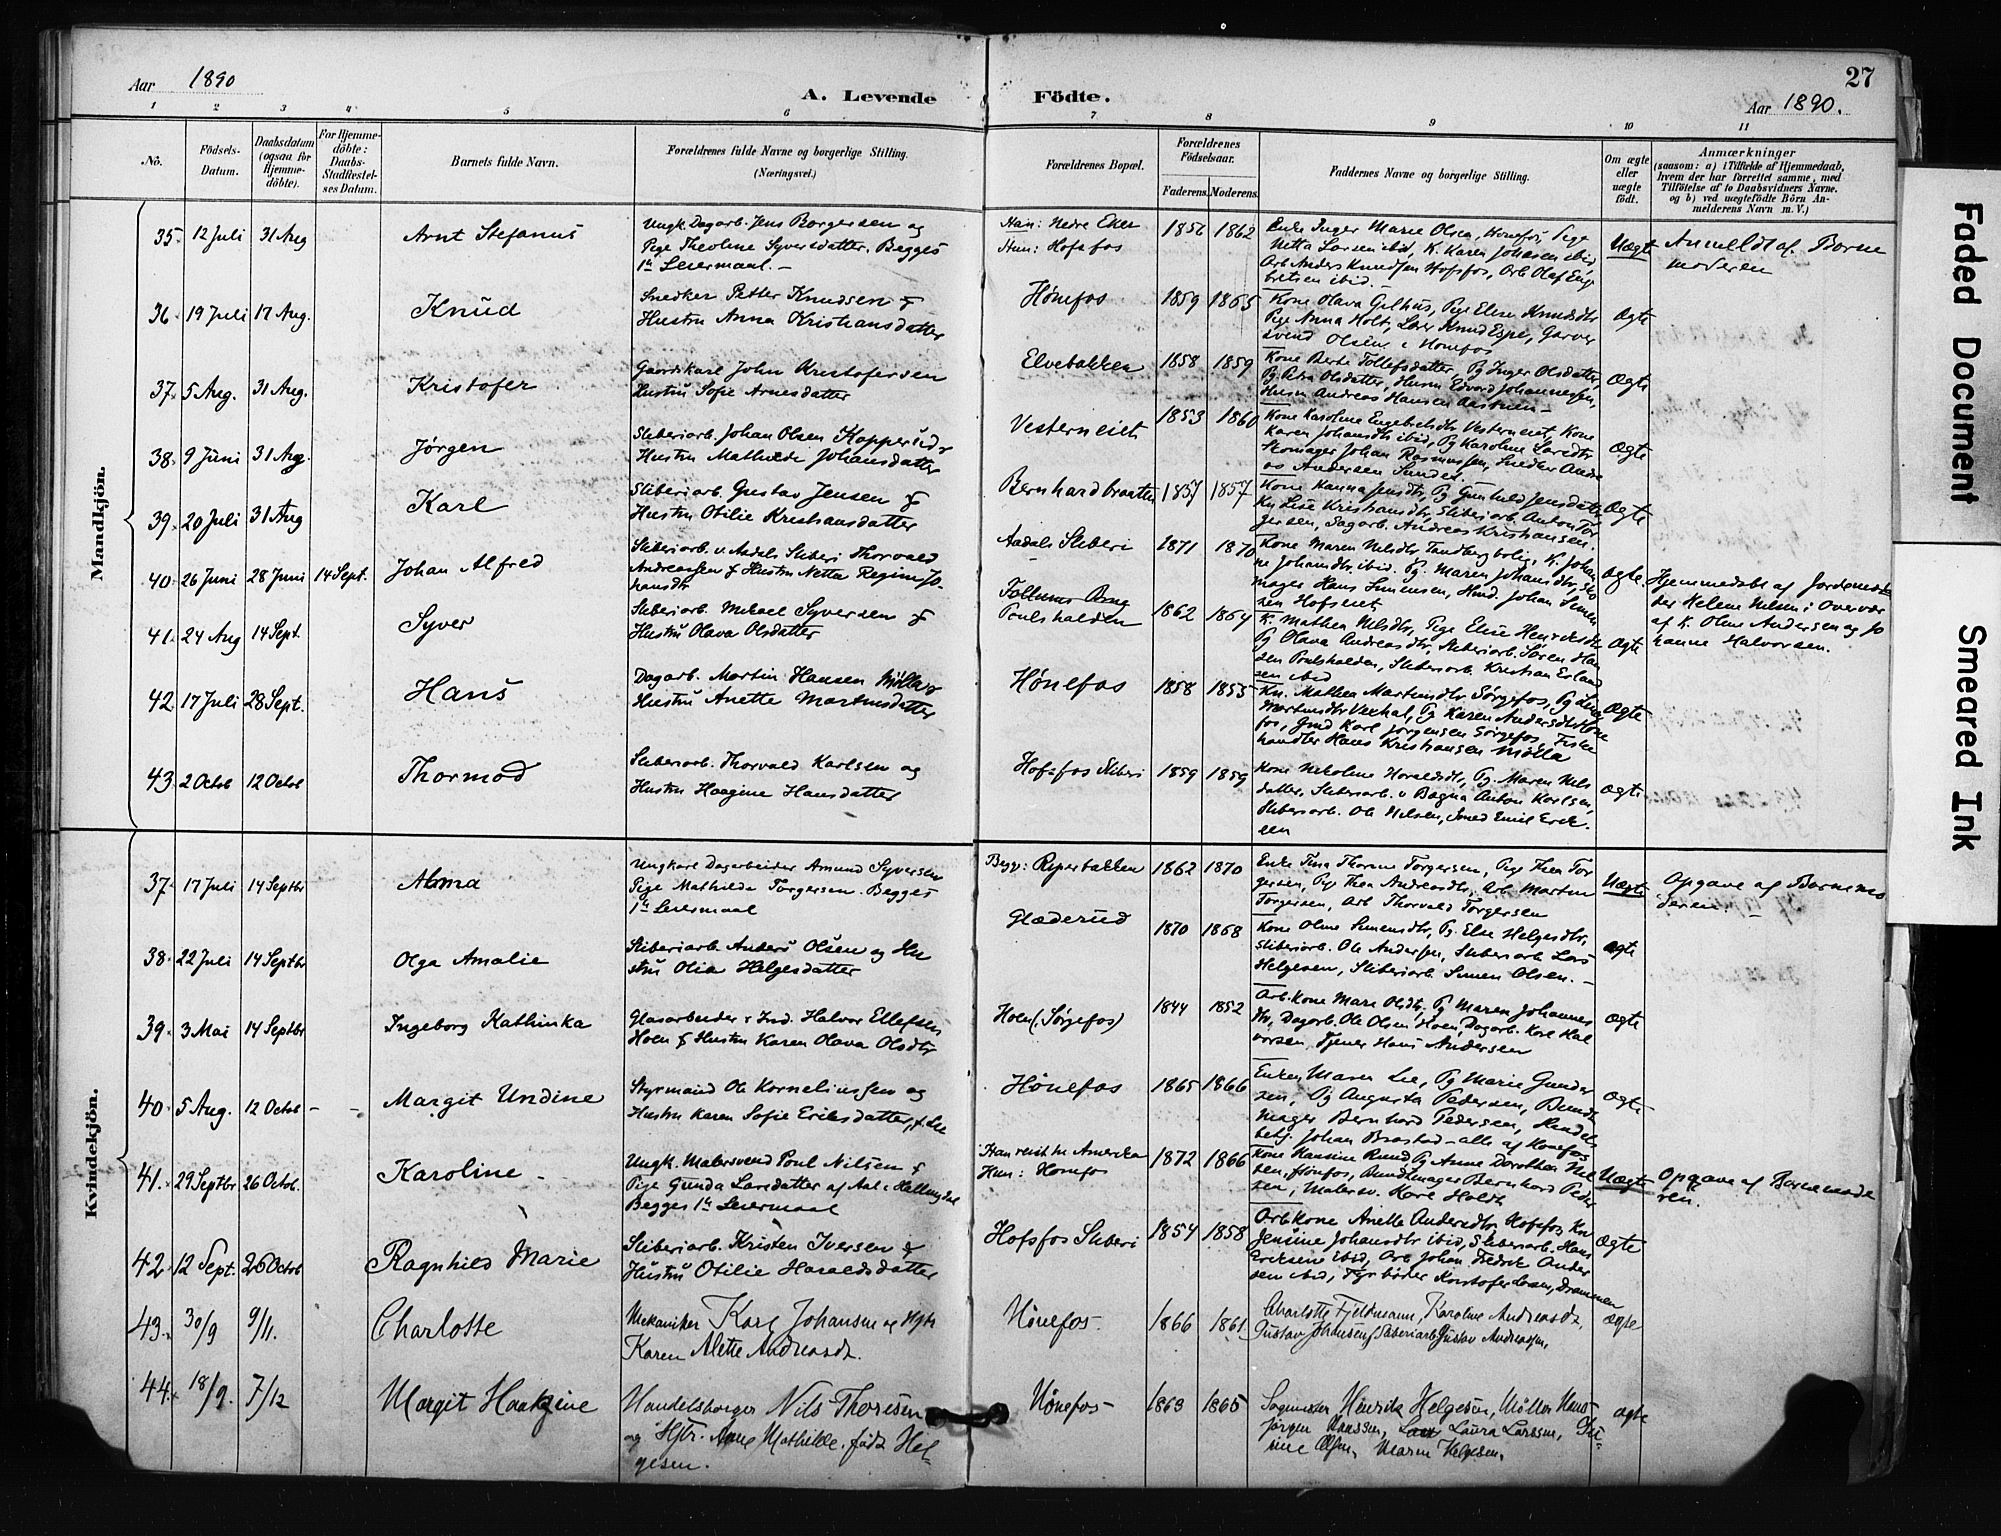 27
Aar 1890
A. Levende Födte.
Aar 1890.
1 2 3 4 5 6 7 8 9 10 11
No.
Födsels-
Datum.
Daabsdatum
(ogsaa for
Hjemme-
döbte).
For Hjemme-
döbte:
Daabs-
Stadfæstel-
ses Datum.
Barnets fulde Navn.
Forældrenes fulde Navne og borgerlige Stilling.
(Næringsvei.)
Forældrenes Bopæl.
Forældrenes
Födselsaar.
Faderens. Moderens.
Faddernes Navne og borgerlige Stilling.
Om ægte
eller
uægte
födt.
Anmærkninger
(saasom: a) i Tilfælde af Hjemmedaab,
hvem der har forrettet samme, med
Tilföielse af to Daabsvidners Navne.
og b) ved uægtefödte Börn An-
melderens Navn m. V.)
Mandkjön.
35. 12 Juli 31 Aug Arnt Stefanus
Ungk. Dagarb. Jens Borgersen og
Pige Theoline Syversdatter. Begges
1ste Leiermaal. –
Han: Nedre Eker
Hun: Hofsfos
1856 1862
Enke Inger Marie Olsen, Hønefos, Pige
Netta Larsen ibid, K. Karen Johansen ibid
Arb. Anders Knudsen Hofsfos, Arb Olaf Enge
bretsen ibid. –
Uægte
Anmeldt af Barne
moderen
36. 19 Juli 17 Aug. Knud
Snedker Petter Knudsen &
Hustru Anna Kristiansdatter
Hønefos 1859 1865
Kone Olava Gulhus, Pige Elise Knudsdtr
Pige Anna Holt, Lærer Knud Espe, Garver
svend Olsen i Hønefos
Ægte
37. 5 Aug. 31 Aug. Kristofer
Gaardskarl John Kristofersen
Hustru Sofie Arnesdatter
Elvebakken 1858 1859
Kone Berte Tollefsdatter, Pg Inger Olsdatter,
Pg. Petra Olsdatter, Husm Edvard Johannessen,
Husm Andreas Hansen
Ægte
38. 9 Juni 31 Aug. Jørgen
Sliberiarb. Johan Olsen Kopperud &
Hustru Mathilde Johansdatter
Vesterneiet 1853 1860
Kone Karoline Engebretsdtr Vesterneiet, Kone
Karen Johansdtr ibid, Pg Karoline Larsdtr
Skomager Johan Rasmussen, Snedker Andre
as Andersen Sundet.
Ægte
39. 20 Juli 31 Aug Karl
Sliberiarb. Gustav Jensen &
Hustru Otilie Kristiansdatter
Bernhardbraatten 1857 1857
Kone Hanna Jensdtr, Pg Gunhild Jensdatter
Kn Lise Kristiansdtr, Sliberiarb. Anton Tor
gersen, Dagarb. Andreas Kristiansen.
Ægte
40. 26 Juni 28 Juni 14 Sept. Johan Alfred
Sliberiarb. v. Aadals Sliberi Thorvald
Andreassen & Hustru Netta Regine Jo
hansdtr
Aadals Sliberi 1871 1870
Kone Maren Nilsdtr Tandbergbolig, K. Johan
ne Johansdtr ibid. Pg. Maren Johansdtr, Sko
mager Hans Simensen, Johan Simen
sen Hofseiet
Ægte.
Hjemmedøbt af Jordemo
der Helene Nilsen i Overvær
af K. Oline Andersen og Jo
hanne Halvorsen.
41. 24 Aug 14 Sept. Syver
Sliberiarb. Mikael Syversen &
Hustru Olava Olsdatter
Follums Brug
Poulshalden 1862 1864
K. Mathea Nilsdtr, Pige Elise Henriksdtr
Pg Olava Andreasdtr, Sliberiarb. Søren Han
sen Poulshalden, Sliberiarb. Kristian Erland
sen ibid
Ægte
42 17 Juli 28 Sept. Hans
Dagarb. Martin Hansen Mølla &
Hustru Anette Martinsdatter
Hønefos 1858 1855
Kn. Mathea Martinsdtr Sørgefos, Pg Lina
Martinsdtr Vexhal, Pg Karen Andersdtr Høne
fos, Gmd Karl Jørgensen Sørgefos, Fiske
handler Hans Kristiansen Mölla
Ægte
43. 2 Octob 12 Octob Thormod
Sliberiarb. Thorvald Karlsen og
Hustru Haagine Hansdatter
Hofsfos Sliberi 1859 1859
Kone Nikoline Haraldsdtr, Pg. Maren Nils
datter, Sliberiarb. v Bagna Anton Karlsen,
Sliberiarb. Ole Nilsen, Smed Emil Erik
sen
Ægte
Kvindekjön.
37. 17 Juli 14 Septbr Alma
Ungkarl Dagarbeider Amund Syversen
Pige Mathilde Torgersen. Begges
1ste Leiermaal
Begge: Ryperbakken 1862 1870
Enke Tina Thorine Torgersen, Pige Thea Tor
gersen, Pige Thea Andreasdtr, Arb. Martin
Torgersen, Arb Thorvald Torgersen
Uægte
Opgave af Barnemo
deren. –
38. 22 Juli 14 Septbr Olga Amalie
Sliberiarb. Anders Olsen og Hu
stru Olia Helgesdatter
Glæderud 1870 1868
Kone Oline Simensdtr, Pg. Else Helgesdtr,
Sliberiarb. Ole Andersen, Sliberiarb Lars
Helgesen, Sliberiarb. Simen Olsen. –
ægte
39. 3 Mai 14 Septbr Ingeborg Kathinka
Glasarbeider & Ind. Halvor Ellefsen
Hoen & Hustru Karen Olava Olsdtr
Hoen (Sørgefos) 1844 1852
Arb.kone Mari Olsdtr, Pg Maren Johannes
dtr, Dagarb. Ole Olsen Hoen, Dagarb. Karl Hal
vorsen, Tjener Hans Andersen
Ægte
40. 5 Aug. 12 Octob – – Margit Undine
Styrmand Ole Korneliussen og
Hustru Karen Sofie Eriksdatter, f. Lie
Hønefos 1865 1866
Enken Maren Lie, Pg Marie Gunder
sen, Pg Augusta Pedersen, Bundt
mager Bernhard Pedersen, Handels
betj. Johan Brostad – alle af Hønefos
Ægte
41. 29 Septbr 26 Octob. Karoline –
Ungk. Malersvend Poul Nilsen &
Pige Gunda Larsdatter af Aal i Hallingdal
Begges 1ste Leiermaal
Han reist til Amerika
Hun: Hønefos
1872 1866
Kone Hansine Rund, Pg Anne Dorothea Nil
sen, Hønefos, Bundtmager Bernhard Peder
sen, Malersv. Karl Holdt
Uægte
Opgave af Barnemode
ren.
42. 12 Sept. 26 Octob Ragnhild Marie
Sliberiarb. Kristen Iversen &
Hustru Otilie Haraldsdatter
Hofsfos Sliberi 1854 1858
Arbkone Anette Andersdtr Hofsfos, Kn
Jensine Johansdtr ibid, Sliberiarb. Hans
Eriksen ibid, Arb Johan Fredrik Ander
sen ibid, Fyrbøder Kristofer Loen, Drammen
Ægte
43. 30/9 9/11. Charlotte
Mekaniker Karl Johansen og Hstr
Karen Alette Andreasdt.
Hönefos. 1866 1861
Charlotte Fjeldmann, Karoline Andreasdt,
Gustav Johansen, Sliberiarb Gustav Andreassen,
ægte
44. 18/9. 7/12 Margit Haakgine
Handelsborger Nils Thoresen
og Hstr. Anne Mathilde født Hel-
gesen.
Hönefos– 1863 1865
Henrik Helgesen, Møller Hans
Jørgen Hanssen, Laura Larssen, Tri-
ine Olsen, Maren Helgesen.
ægte
Faded Document
Smeared Ink